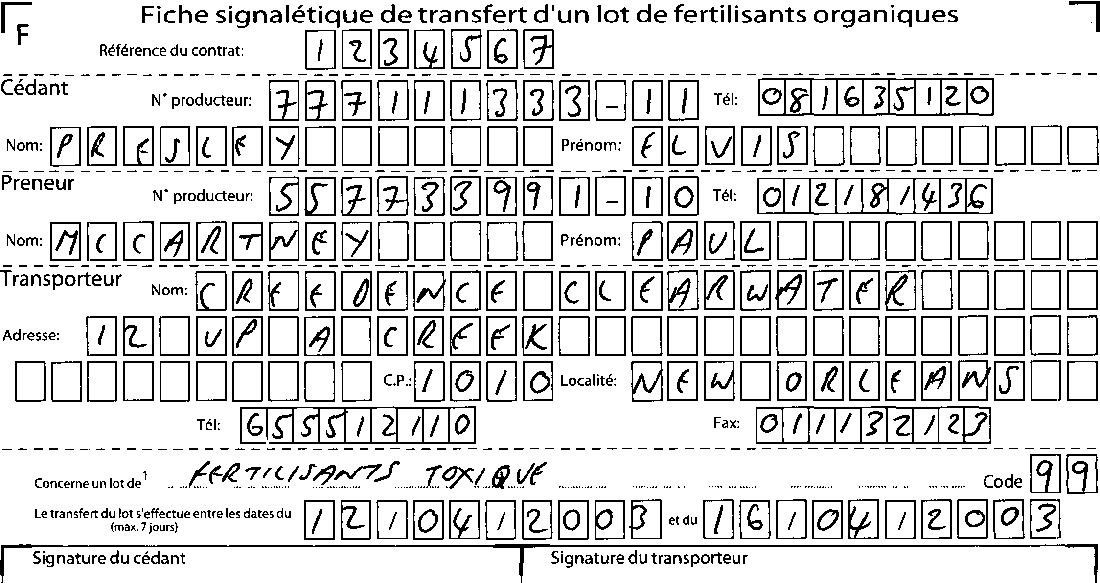 Fiche signalétique de transfert d'un lot de fertilisants organiques
F
Référence du contrat: 1234567
Cédant
N° producteur: 777111333-11 Tél: 081635120
Nom: PRESLEY Prénom: ELVIS
Preneur
N° producteur: 557733991-10 Tél: 012181436
Nom: MCCARTNEY Prénom: PAUL
Transporteur
Nom: CREEDENCE CLEARWATER
Adresse: 12 UP A CREEK
C.P.: 1010 Localité: NEW ORLEANS
Tél: 655512110 Fax: 011132123
Concerne un lot de¹ FERTILISANTS TOXIQUE Code 99
Le transfert du lot s'effectue entre les dates du 12/04/2003 et du 16/04/2003
(max. 7 jours)
Signature du cédant Signature du transporteur